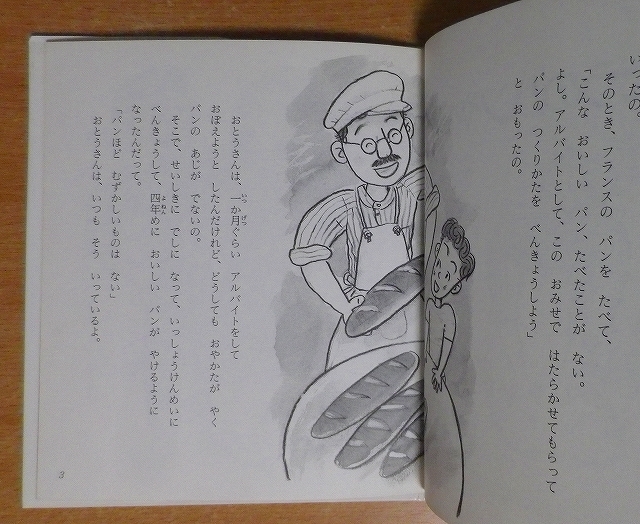 いったの。
そのとき、フランスの　パンを　たべて、
「こんな　おいしい　パン、たべたことが　ない。
よし。アルバイトとして、この　おみせで　はたらかせてもらって
パンの　つくりかたを　べんきょうしよう」
と　おもったの。
おとうさんは、一か月ぐらい　アルバイトをして
おぼえようと　したんだけれど、どうしても　おやかたが　やく
パンの　あじが　でないの。
そこで、せいしきに　でしに　なって、いっしょうけんめいに
べんきょうして、四年めに　おいしい　パンが　やけるように
なったんだって。
「パンほど　むずかしいものは　ない」
おとうさんは、いつも　そう　いっているよ。
3